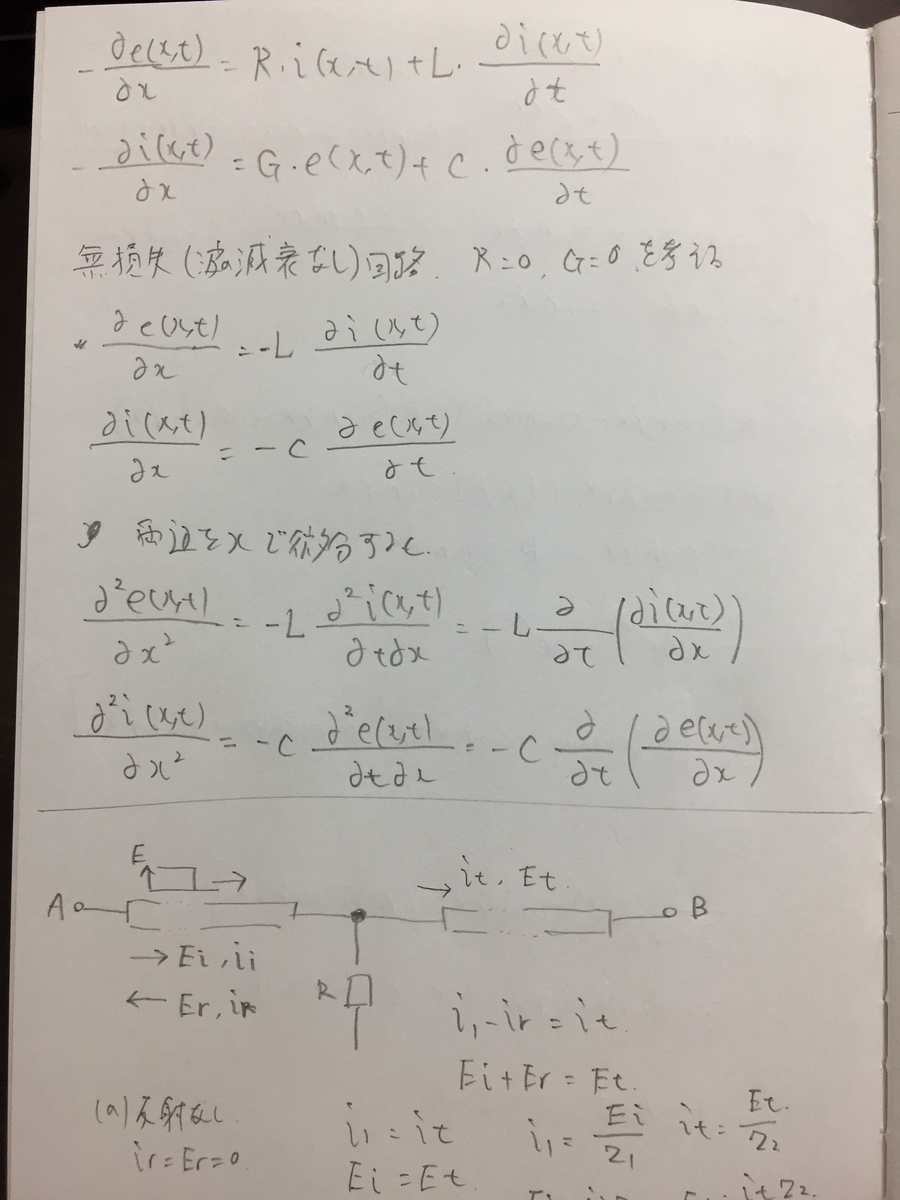 -∂e(x,t)/∂x = R・i(x,t)+L・∂i(x,t)/∂t
-∂i(x,t)/∂x = G・e(x,t)+C・∂e(x,t)/∂t
無損失(波の減衰なし)回路. R=0, G=0 を考える
* ∂e(x,t)/∂x = -L ∂i(x,t)/∂t
∂i(x,t)/∂x = -C ∂e(x,t)/∂t.
両辺をxで微分すると.
∂²e(x,t)/∂x² = -L ∂²i(x,t)/∂t∂x = -L ∂/∂t (∂i(x,t)/∂x)
∂²i(x,t)/∂x² = -C ∂²e(x,t)/∂t∂x = -C ∂/∂t (∂e(x,t)/∂x)
E
→ it, Et.
A
B
→ Ei, ii
← Er, iR
R
i₁-ir = it.
Ei+Er = Et.
(a)反射なし
ir=Er=0.
i₁ = it
Ei = Et.
i₁ = Ei/Z₁ it = Et./Z₂
it Z₂.